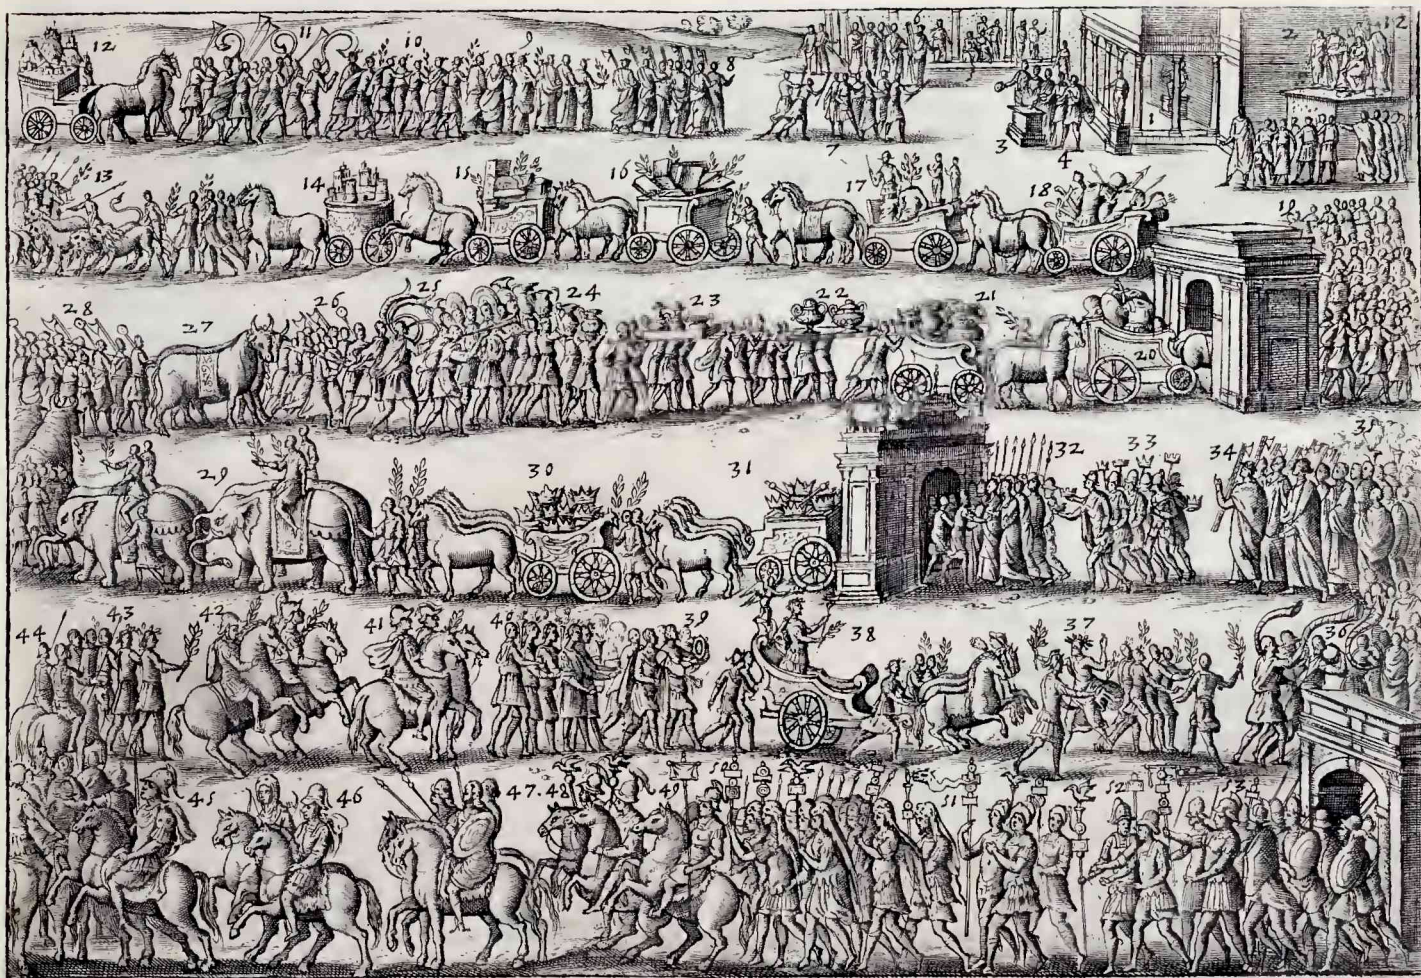 12 11 10 9 8 6 2 12
7 3 4 1
13 14 15 16 17 18 19
28 27 26 25 24 23 22 21 20
29 30 31 32 33 34 35
44 43 42 41 40 39 38 37 36
45 46 47. 48 49 50 51 52 53